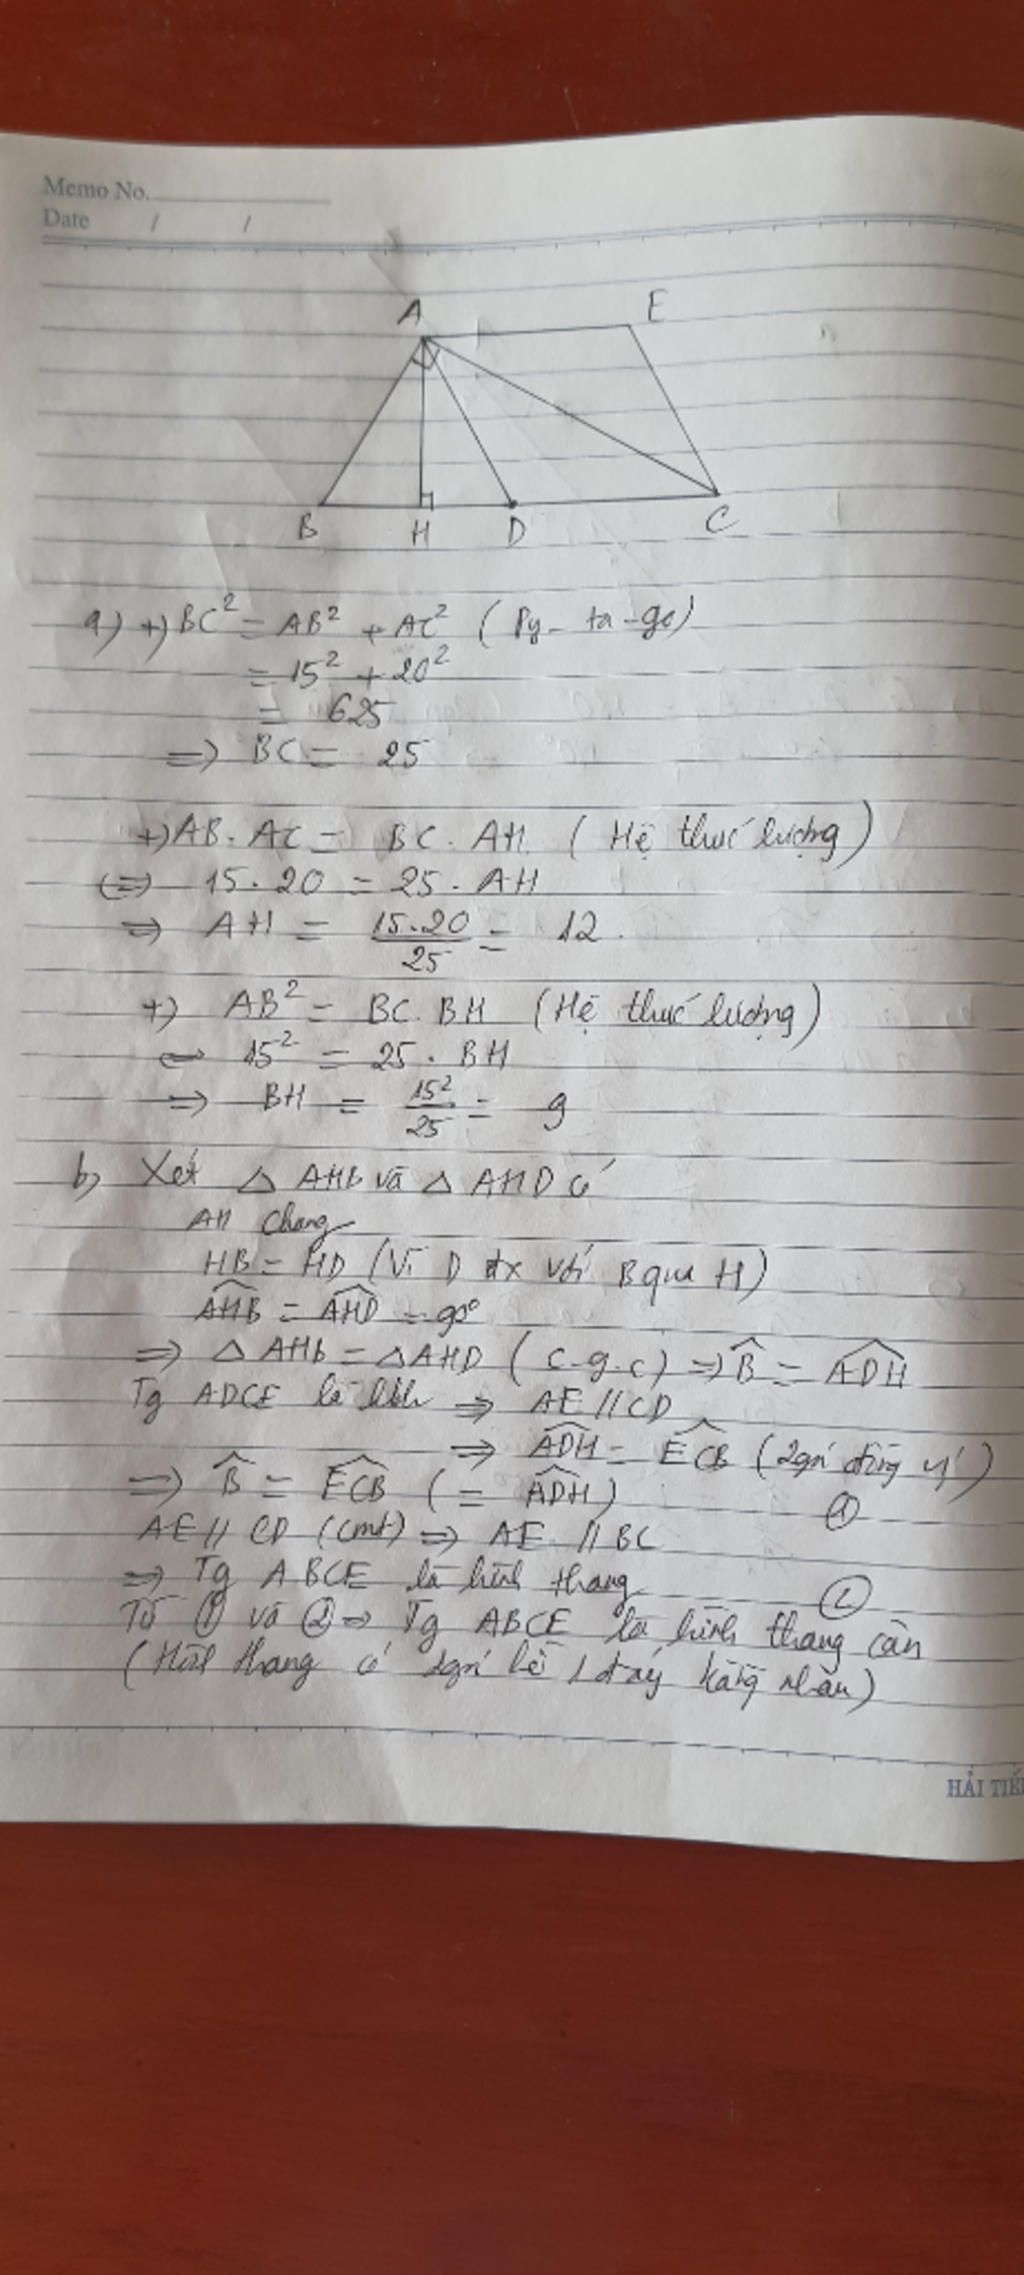 Memo No.
Date / /
A E
B H D C
a) +) BC² = AB² + AC² (Py-ta-go)
= 15² + 20²
= 625
=> BC = 25
+) AB. AC = BC. AH. (Hệ thức lượng)
<=> 15. 20 = 25. AH
=> AH = 15.20/25 = 12.
+) AB² = BC. BH (Hệ thức lượng)
<=> 15² = 25. BH
=> BH = 15²/25 = 9
b) Xét △ AHB và △ AHD có
AH chung
HB = HD (Vì D đx với B qua H)
AHB = AHD = 90°
=> △ AHB = △ AHD (c-g-c) => B = ADH
Tg ADCE là hbh => AE // CD
=> ADH = ECB (2 góc đồng vị)
=> B = ECB (= ADH) ①
AE // CD (cmt) => AE // BC
=> Tg ABCE là hình thang ②
Từ ① và ② => Tg ABCE là hình thang cân
(Hình thang có 2 góc kề 1 đáy bằng nhau)
HẢI TIẾ